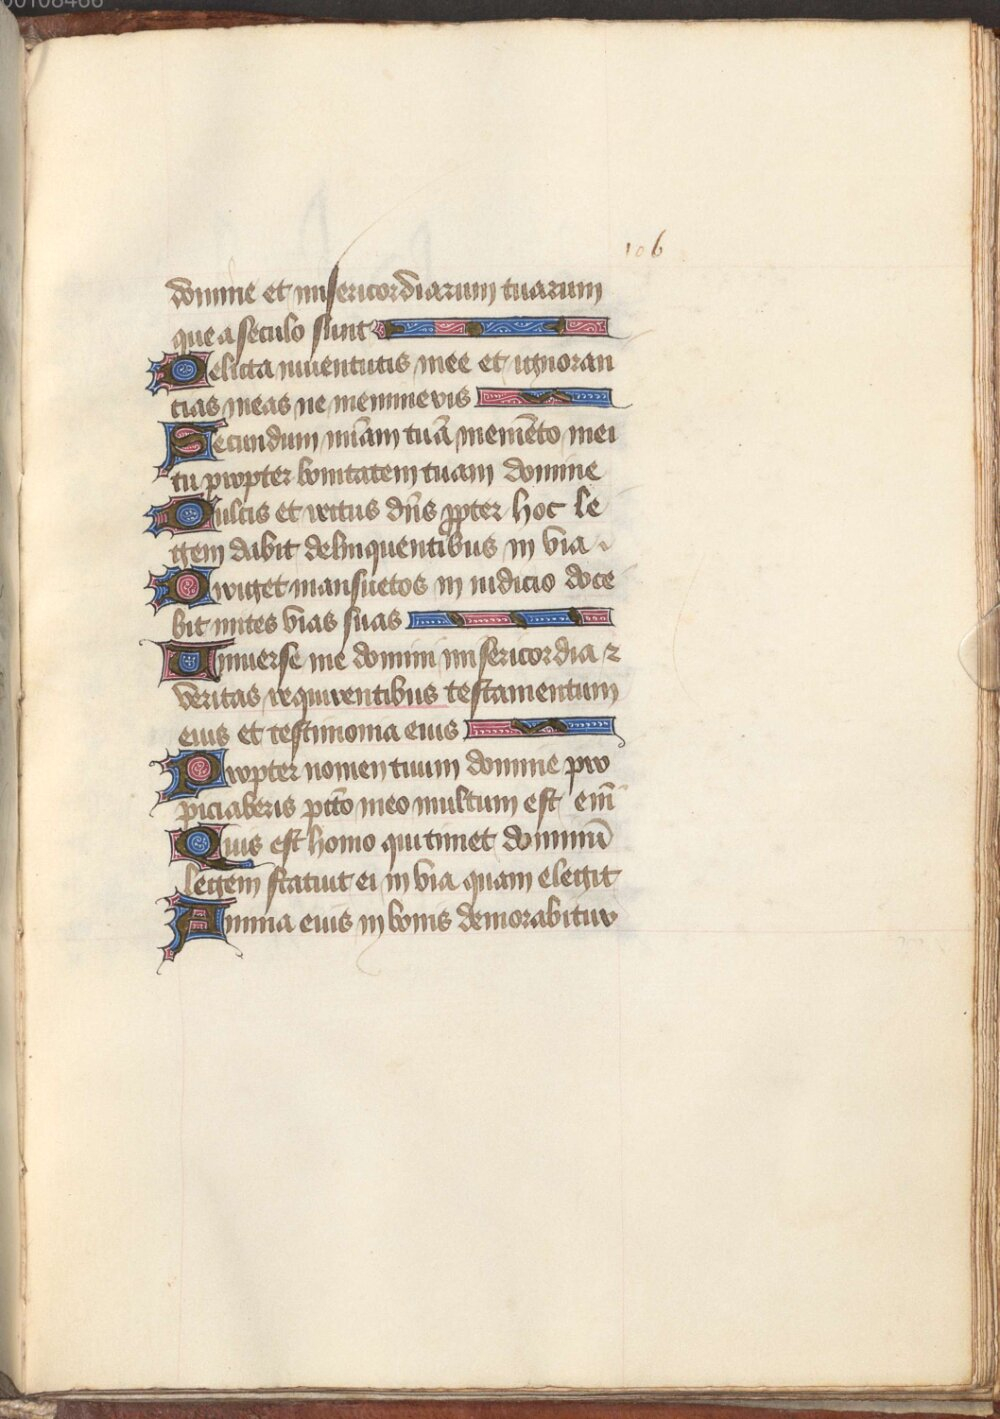 00108466
106
domine et misericordiarum tuarum
que a seculo sunt
Delicta iuuentutis mee et ignoran
tias meas ne memineris
Secundum mīam tuā memēto mei
tu propter bonitatem tuam domine
Dulcis et rectus dn̄s ꝓpter hoc le
gem dabit delinquentibus in via
Diriget mansuetos in iudicio doce
bit mites vias suas
Vniuerse vie domini misericordia ⁊
veritas requirentibus testamentum
eius et testimonia eius
Propter nomen tuum domine pro
piciaberis pctō meo multum est eni̅
Quis est homo qui timet dominū
legem statuit ei in via quam elegit
Anima eius in bonis demorabitur